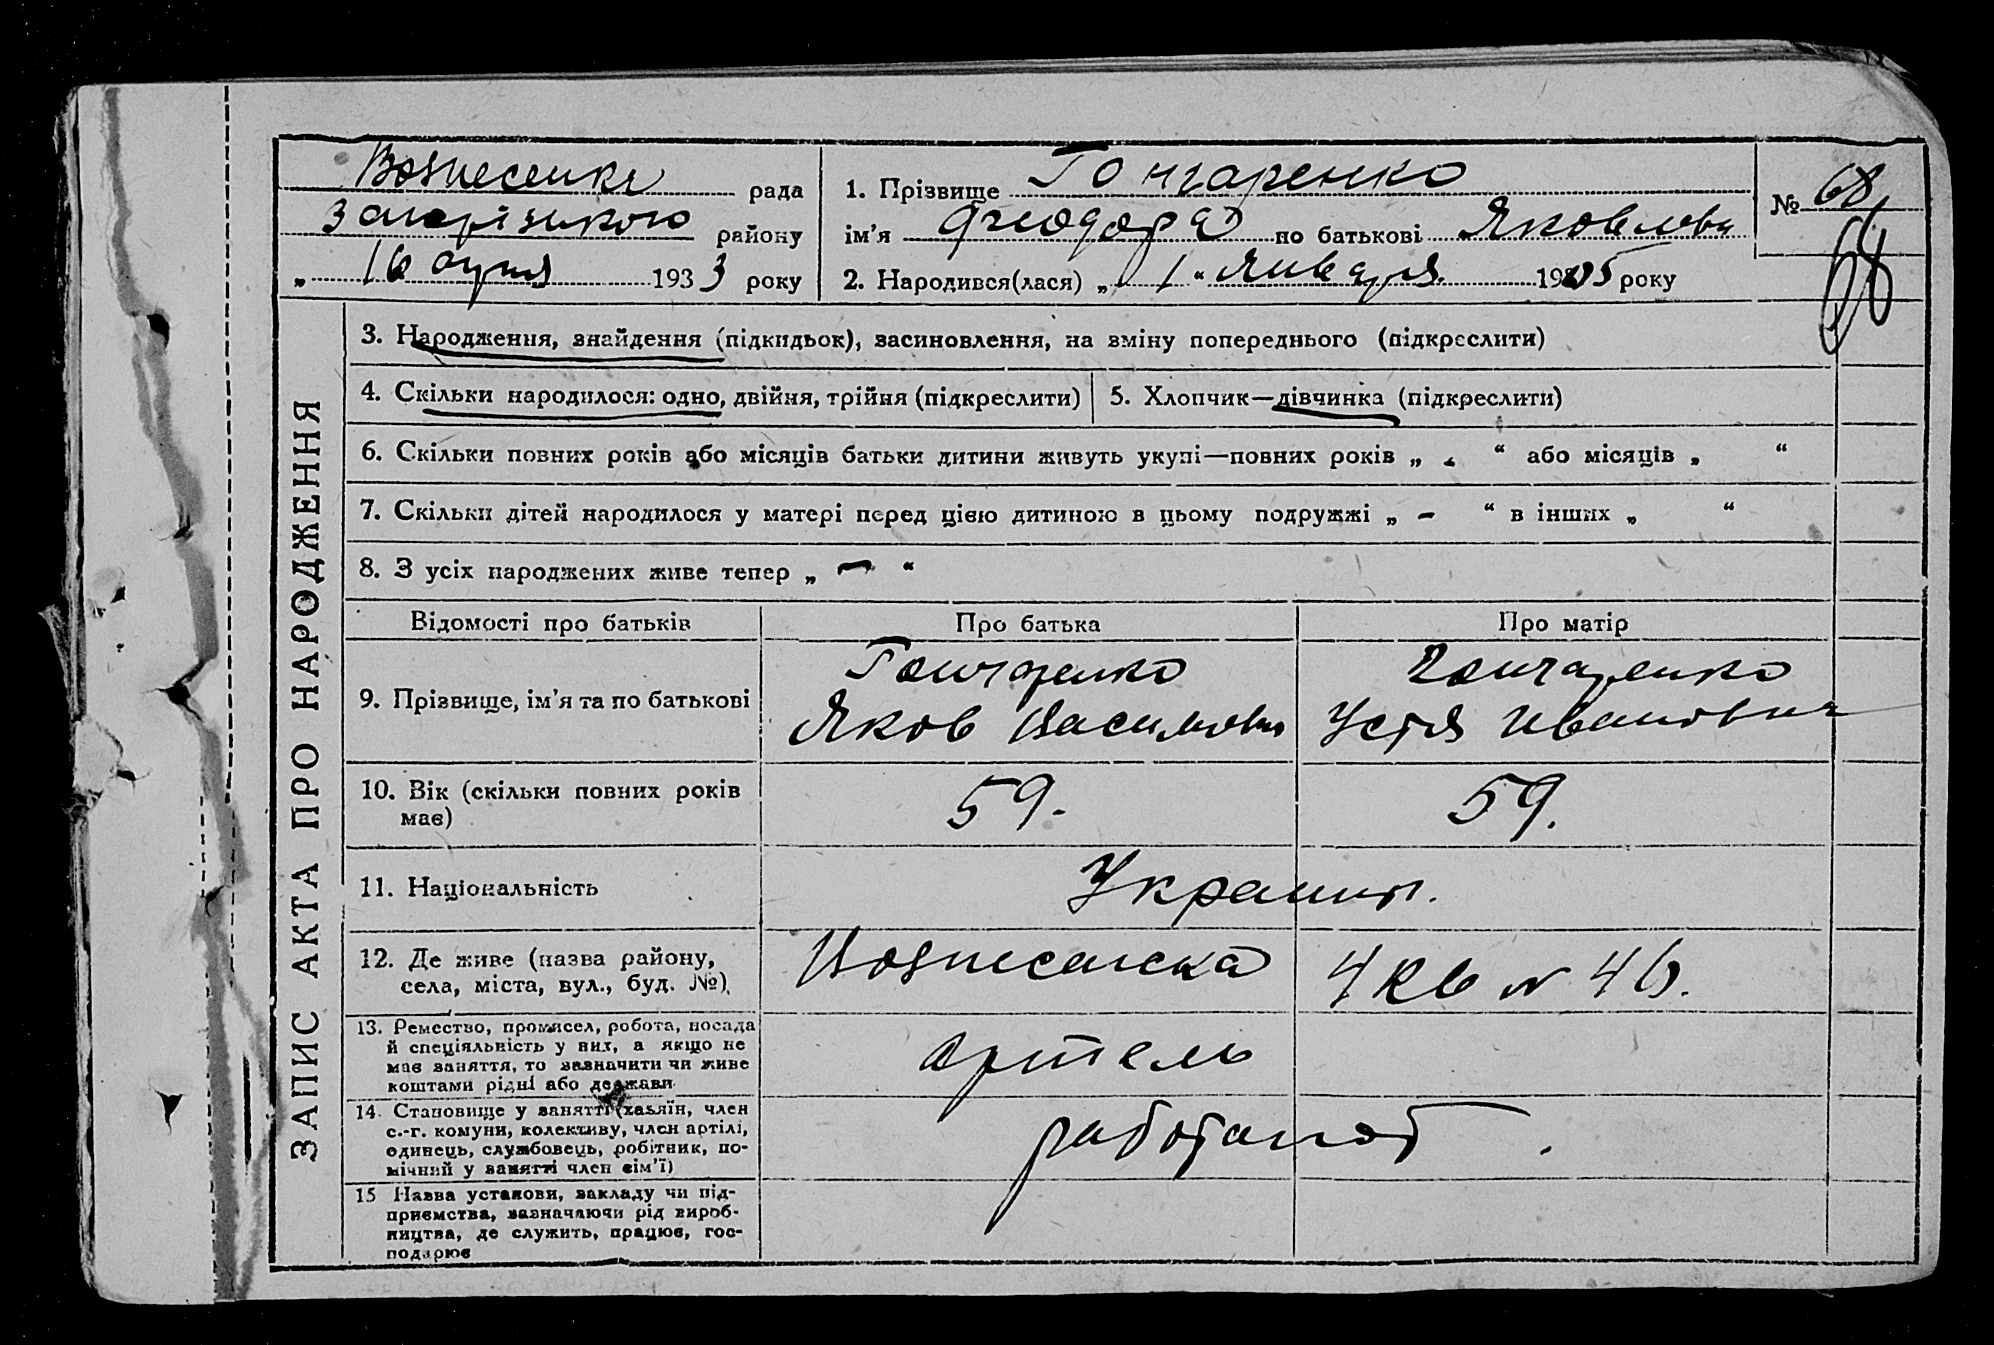 Вознесенки рада
Запорізького району
„ 16 априля 1933 року
1. Прізвище Гончаренко
ім’я Феодора по батькові Яковлевн
2. Народився(лася) „ 1 “ Января 1905 року
№ 68
68
ЗАПИС АКТА ПРО НАРОДЖЕННЯ
3. Народження, знайдення (підкидьок), засиновлення, на зміну попереднього (підкреслити)
4. Скільки народилося: одно, двійня, трійня (підкреслити)
5. Хлопчик—дівчинка (підкреслити)
6. Скільки повних років або місяців батьки дитини живуть укупі—повних років „ - “ або місяців „ “
7. Скільки дітей народилося у матері перед цією дитиною в цьому подружжі „ - “ в інших „ “
8. З усіх народжених живе тепер „ — “
Відомості про батьків
Про батька
Про матір
9. Прізвище, ім’я та по батькові
Гончаренко
Яков Васильови
Гончаренко
Устя Ивановна
10. Вік (скільки повних років
має)
59.
59.
11. Національність
Украинц.
12. Де живе (назва району,
села, міста, вул., буд. №)
Вознесенска
4 кв № 46.
13. Ремество, промисел, робота, посада
й спеціяльність у них, а якщо не
має заняття, то зазначити чи живе
коштами рідні або держави
артель
14. Становище у занятті (хазяїн, член
с.-г. комуни, колективу, член артілі,
одинець, службовець, робітник, по-
мічний у занятті член сім’ї)
работают.
15 Назва установи, закладу чи під-
приємства, зазначаючи рід вироб-
ництва, де служить, працює, гос-
подарює